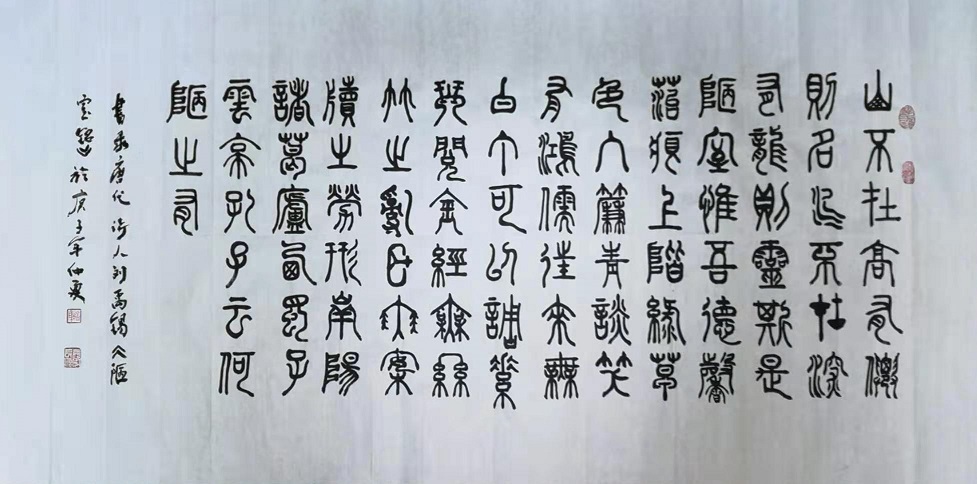 山不在高有僊
則名水不在深
有龍則靈斯是
陋室惟吾德馨
菭痕上階綠草
色入簾青談笑
有鴻儒往來無
白丁可以調素
琴閱金經無絲
竹之亂耳無案
牘之勞形南陽
諸葛廬西蜀子
雲亭孔子云何
陋之有
書录唐代詩人刘禹錫之陋
室銘於庚子年仲夏